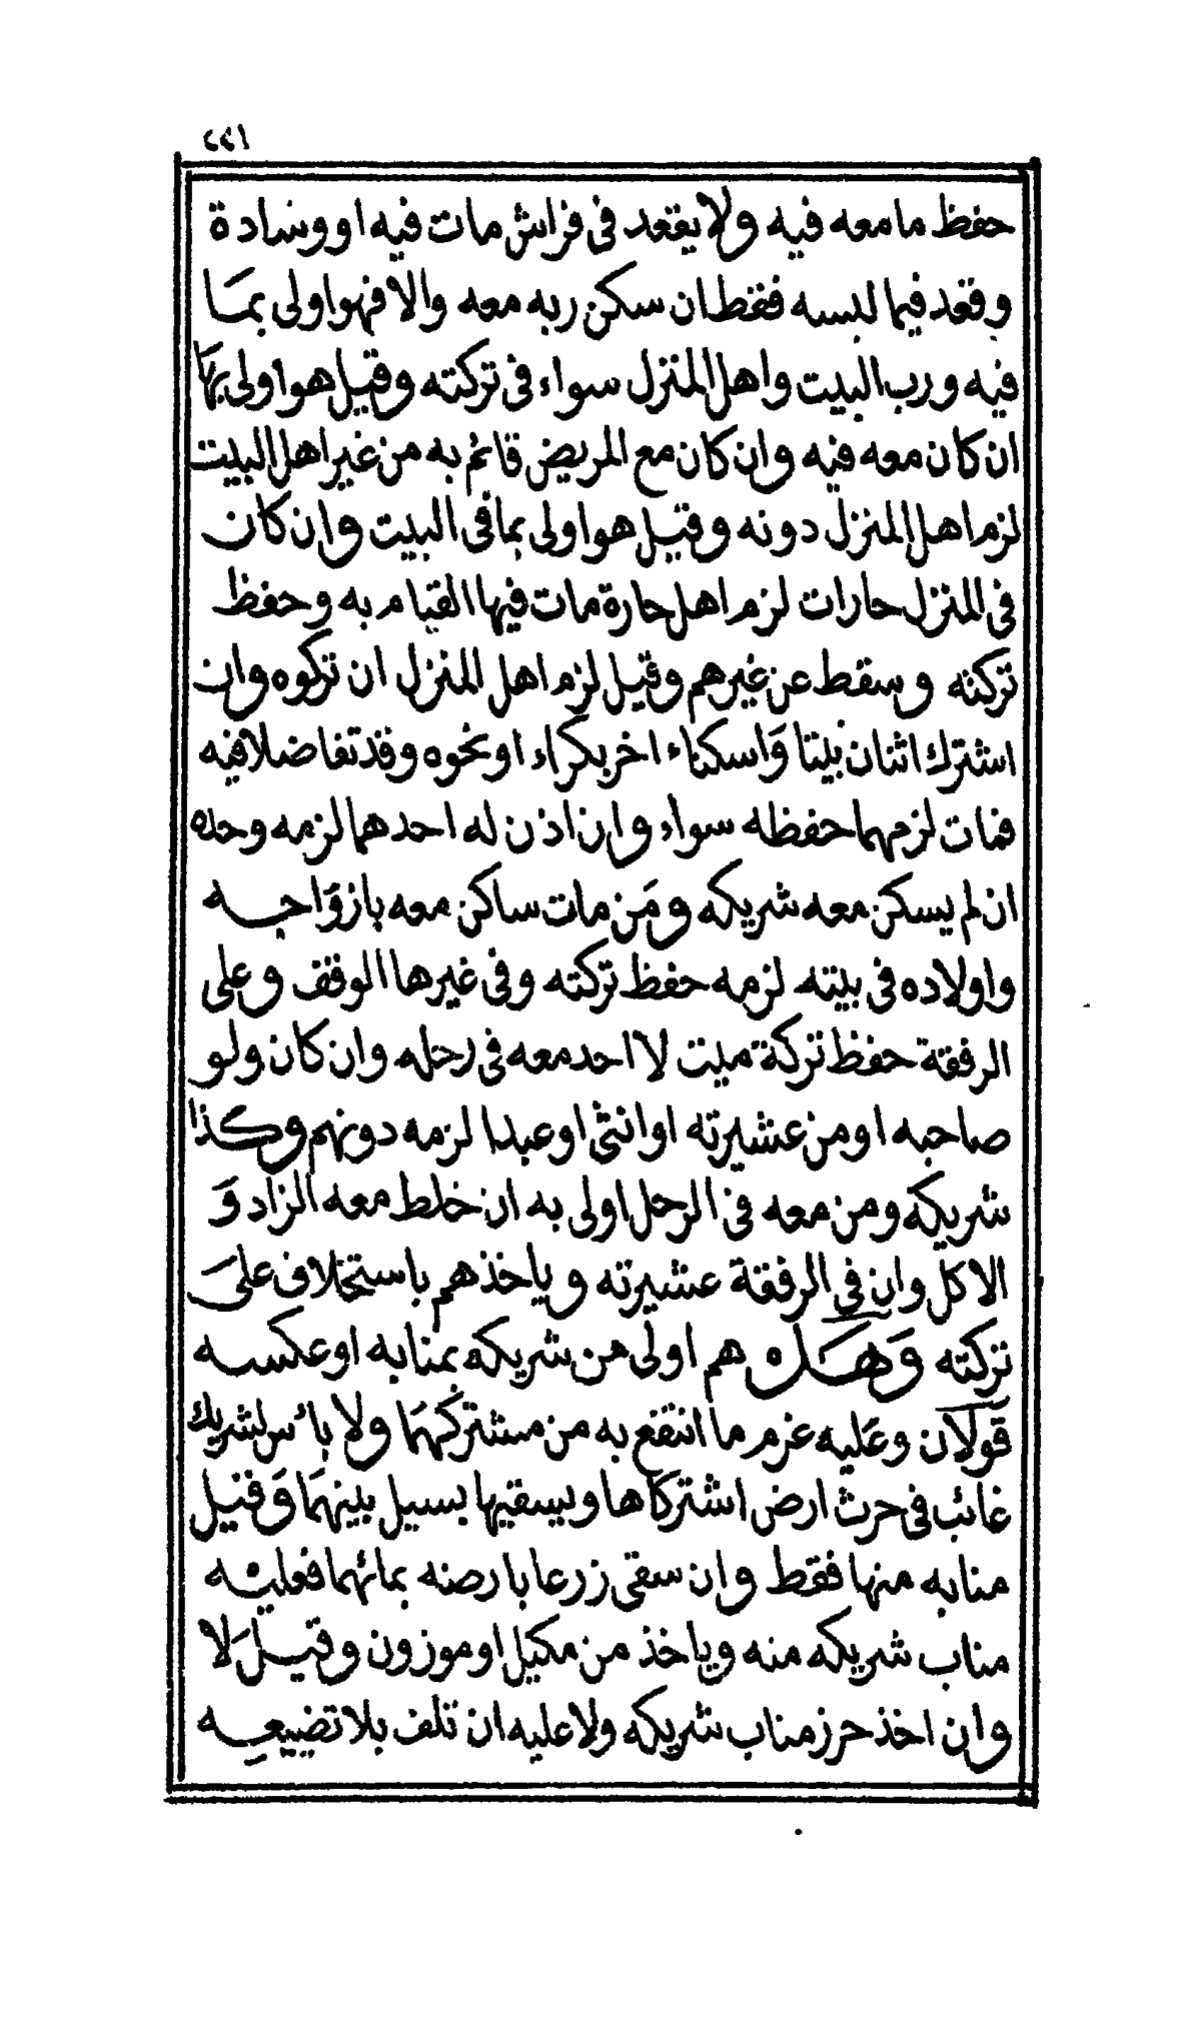 ٢٢١
حفظ ما معه فيه ولا يقعد فى فراش مات فيه او وسادة
وقعد فيما لبسه فقط ان سكن ربه معه والا فهو اولى بما
فيه ورب البيت واهل المنزل سواء فى تركته وقيل هو اولى بها
ان كان معه فيه وان كان مع المريض قائم به من غير اهل البيت
لزم اهل المنزل دونه وقيل هو اولى بما فى البيت وان كان
فى المنزل حارات لزم اهل حارة مات فيها القيام به وحفظ
تركته وسقط عن غيرهم وقيل لزم اهل المنزل ان تركوه وان
اشترك اثنان بيتا وَاسكناء اخر بكراء او نحوه وقد تفاضلا فيه
فمات لزمهما حفظه سواء وان اذن له احدهما لزمه وحده
ان لم يسكن معه شريكه ومَن مات ساكن معه بازوَاجه
واولاده فى بيته لزمه حفظ تركته وفى غيرها الوقف وعلى
الرفقة حفظ تركة ميت لا احد معه فى رحله وان كان ولو
صاحبه او من عشيرته او انثى او عبدا لزمه دونهم وكذا
شريكه ومن معه فى الرحل اولى به ان خلط معه الزاد وَ
الاكل وان فى الرفقة عشيرته وياخذهم باستخلاف علىَ
تركته وَهَل هم اولى من شريكه بمنابه او عكسه
قولان وعَليه غرم ما انتفع به من مشتركهمَا ولا باس لشريك
غائب فى حرث ارض اشتركاها ويسقيها بسيل بينهمَا وَقيل
منابه منها فقط وان سقى زرعا بارضه بمائهما فعليه
مناب شريكه منه وياخذ من مكيل او موزون وقيل لَا
وان اخذ حرز مناب شريكه ولا عليه ان تلف بلا تضييعه